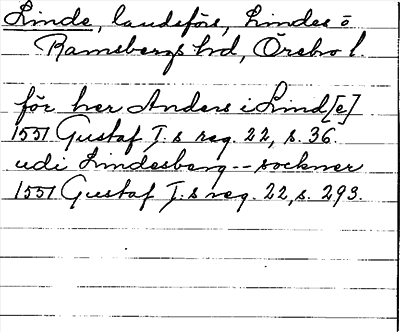 Linde, landsförs, Lindes o
Ramsbergs hd, Örebro l.
för her Anders i Lind[e]
1551 Gustaf I:s reg. 22, s. 36.
udi Lindesberg -- sockner
1551 Gustaf I:s reg. 22, s. 293.